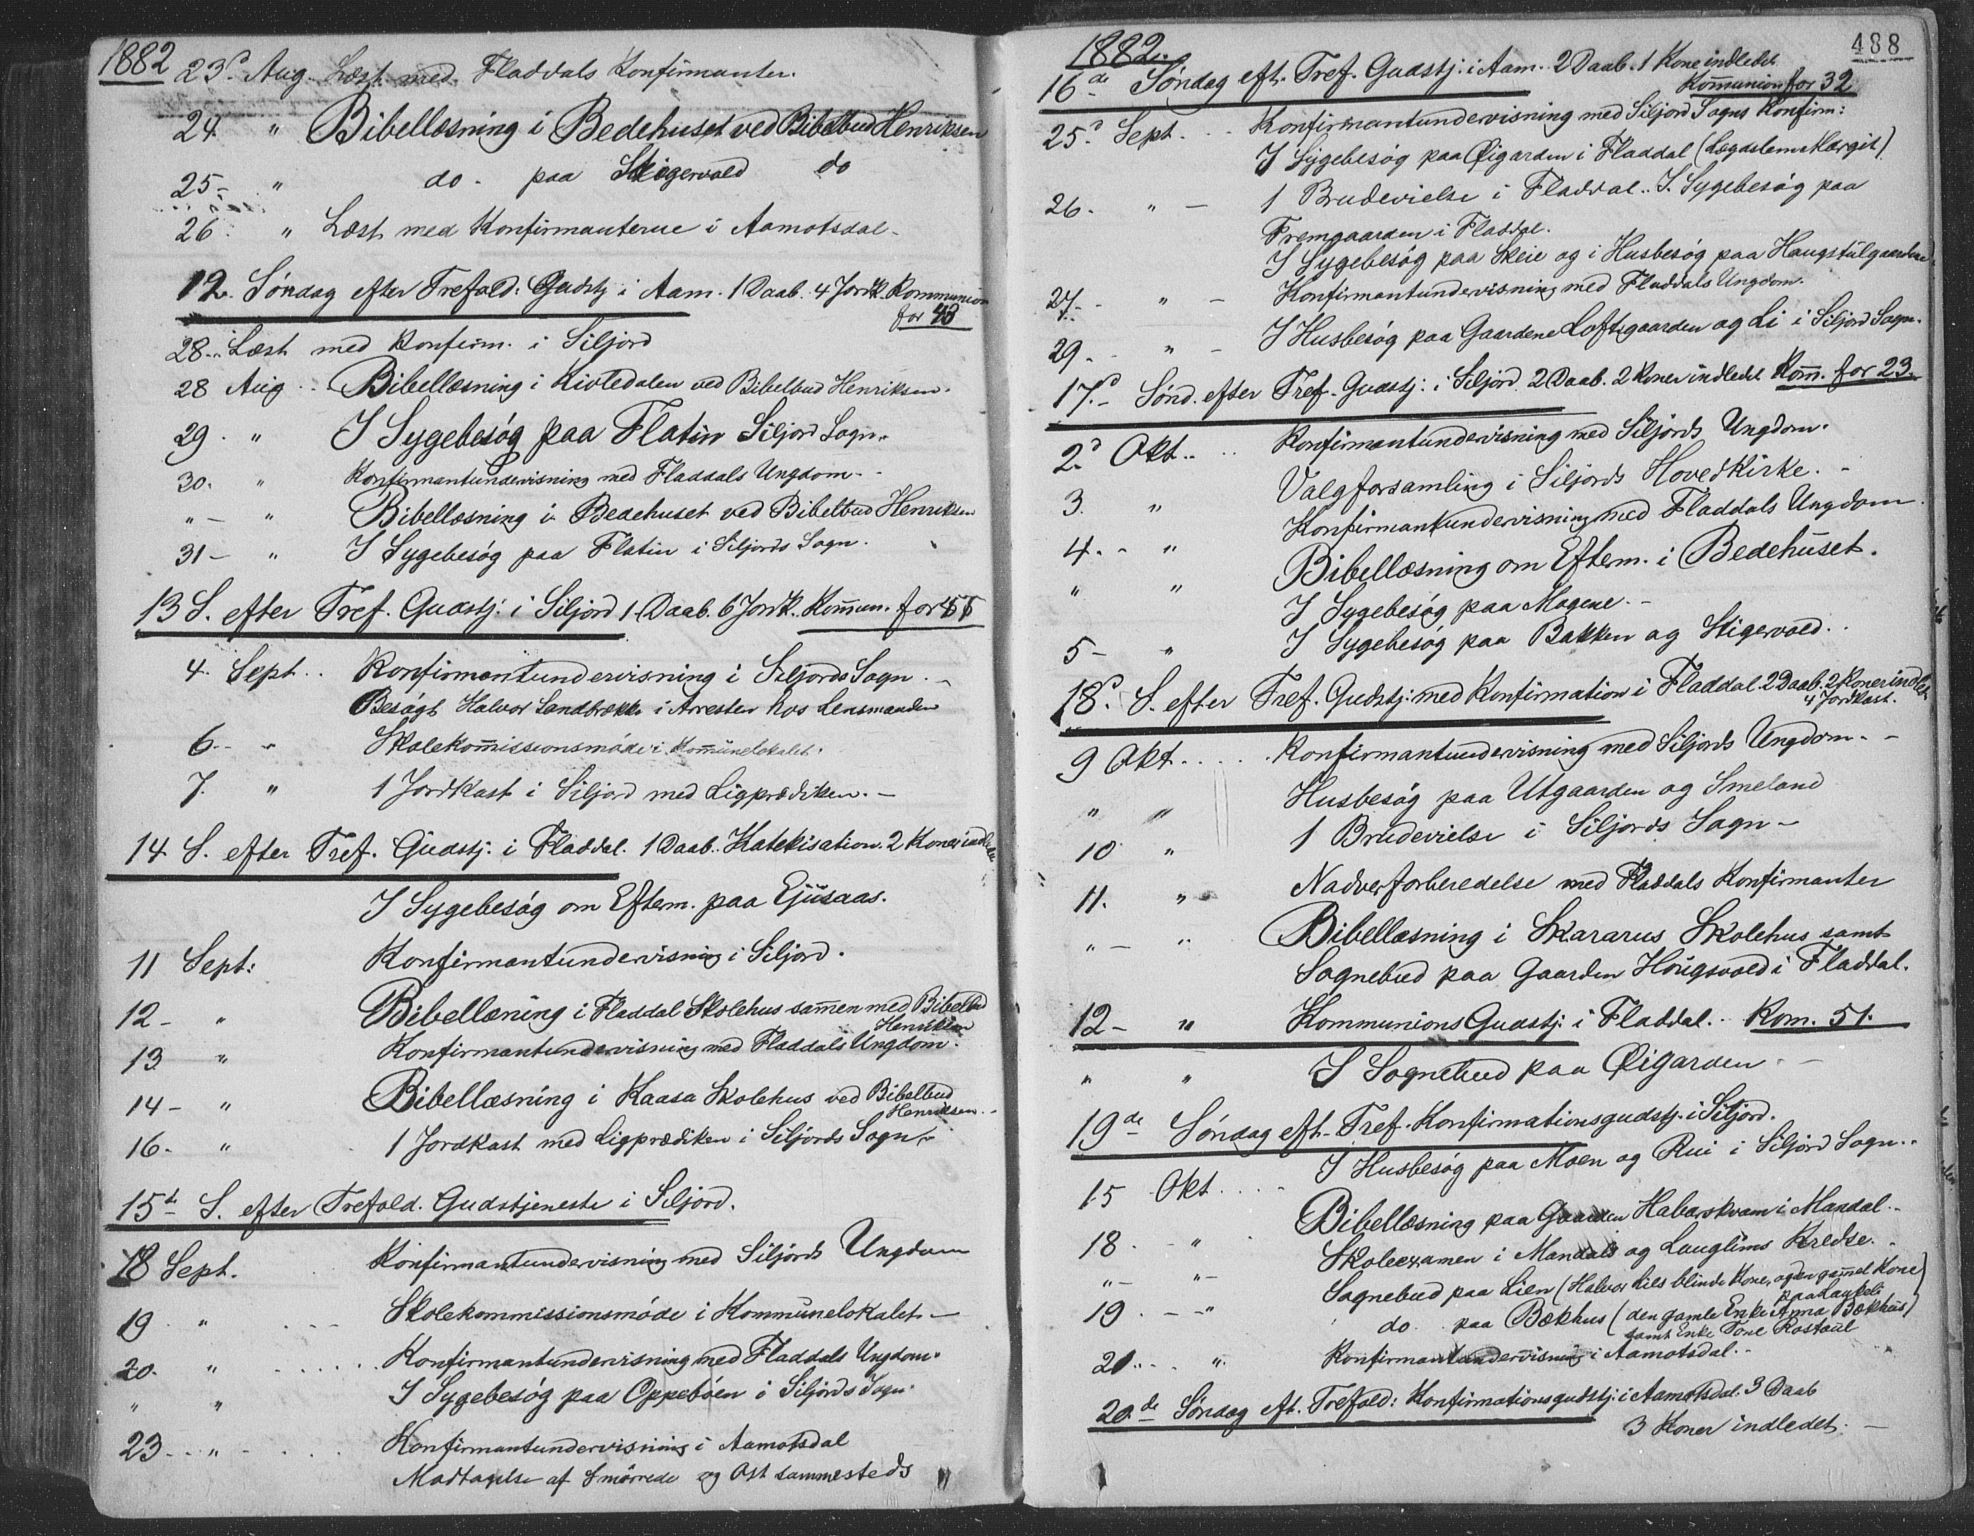 1882
23d Aug. Læst med Fladdals Konfirmanter.
24 " Bibellæsning i Bedehuset ved Bibelbud Henriksen
25 - " do. paa Stigervold do
26 " Læst med Konfirmanterne i Aamotsdal -
12. Søndag efter Trefold: Gudstj i Aam. 1 Daab. 4 Jordk. Kommunion
for 43
28 .. Læst med Konfirm. i Siljord
28 Aug .. Bibellæsning i Kivledalen ved Bibelbud Henriksen.
29 . " I Sygebesøg paa Flatin Siljord Sogn.
30. " Konfirmantundervisning med Fladdals Ungdom. -
" - " Bibellæsning i Bedehuset ved Bibelbud Henriksen
31 - " I Sygebesøg paa Flatin i Siljords Sogn.
13 S. efter Tref. Gudstj: i Siljord 1 Daab. 6 Jordk. Kommun. for
4. Sept .. Konfirmantundervisning i Siljords Sogn . -
Besøgt Halvor Sandbrække i Arresten hos Lensmanden
6 - " Skolekommissionsmøde i Kommunelokalet.
7. " 1 Jordkast i Siljord med Ligprædiken. -
14 S. efter Tref. Gudstj: i Fladdal. 1 Daab. Katekisation. 2 Koner indledet
I Sygebesøg om Eftem. paa Ejusaas.
11 Sept: Konfirmantundervisning i Siljord.
12 - " Bibellæning i Fladdal Skolehus sammen med Bibelbud
Henriksen
13 " Konfirmantundervisning med Fladdals Ungdom.
14 - " Bibellæsning i Kaasa Skolehus ved Bibelbud
Henriksen. -
16. " 1 Jordkast med Ligprædiken i Siljords Sogn -
15d S. efter Trefold. Gudstjeneste i Siljord.
18 Sept. Konfirmantundervisning med Siljords Ungdom
19 " Skolekommissionsmøde i Kommunelokalet -
20. " Konfirmantundervisning med Fladdals Ungdom.
" " I Sygebesøg paa Oppebøen i Siljords Sogn.
23 - " - Konfirmantundervisning i Aamotsdal
Modtagelse af Smørrede og Ost sammesteds
1882.
488
16de Søndag eft. Tref. Gudstj. i Aam. 2 Daab. 1 Kone indledet
Kommunion for 32
25d Sept. .. Konfirmantundervisning med Siljord Sogns Konfirm:
I Sygebesøg paa Øigarden i Fladdal (Lægdslem Margit)
26. " - 1 Brudevielse i Fladdal. I. Sygebesøg paa
Fremgaarden i Fladdal.
I Sygebesøg paa Skeie og i Husbesøg paa Haugstulgaardene
27 - " - Konfirmantundervisning med Fladdals Ungdom.
29. - " - I Husbesøg paa Gaardene Loftsgaarden og Li i Siljord Sogn.
17d - Sønd. efter Tref. Gudstj: i Siljord. 2 Daab. 2 Koner indledet Komm. for 23.
2d Okt .. Konfirmantundervisning med Siljords Ungdom.
3. " Valgforsamling i Siljords Hovedkirke. -
4. - " Konfirmantundervisning med Fladdals Ungdom
" " Bibellæsning om Eftem. i Bedehuset.
I Sygebesøg paa Mogene. -
5 - " I Sygebesøg paa Bakken og Stigervold. .
18d. S. efter Tref. Gudstj: med Konfirmation i Fladdal 2 Daab. 2 Koner indledt
4 Jordkast.
9 Okt. . . . . Konfirmantundervisning med Siljords Ungdom. -
" " Husbesøg paa Utgaarden og Smeland
10 " 1 Brudevielse i Siljords Sogn -
11. " Nadverforberedelse med Fladdals Konfirmanter
" - " Bibellæsning i Skararus Skolehus samt
Sognebud paa Gaarden Hougsvold i Fladdal.
12 - " Kommunions Gudstj: i Fladdal. . Kom. 51.
" " I Sognebud paa Øigarden - -
19de Søndag eft. Tref. Konfirmationsgudstj. i Siljord.
15 Okt. . . . I Husbesøg paa Moen og Rui i Siljord Sogn. .
18. - " Bibellæsning paa Gaarden Habarskvam i Mandal. .
" - " - Skoleexamen i Mandals og Lauglims Kredse. .
19 . - - " Sognebud paa Lien (Halvor Lils blinde Kone, og den gammel Kone)
paa Laukeli
do. paa Bækhus (den gamle Enke Anna Bækhus)
samt Enke Tone Rostaul
20 . . . ". Konfirmantundervisning i Aamotsdal. . -
20.de Søndag eft. Trefold: Konfirmationsgudstj: i Aamotsdal. 3 Daab
3 Koner indledet. -